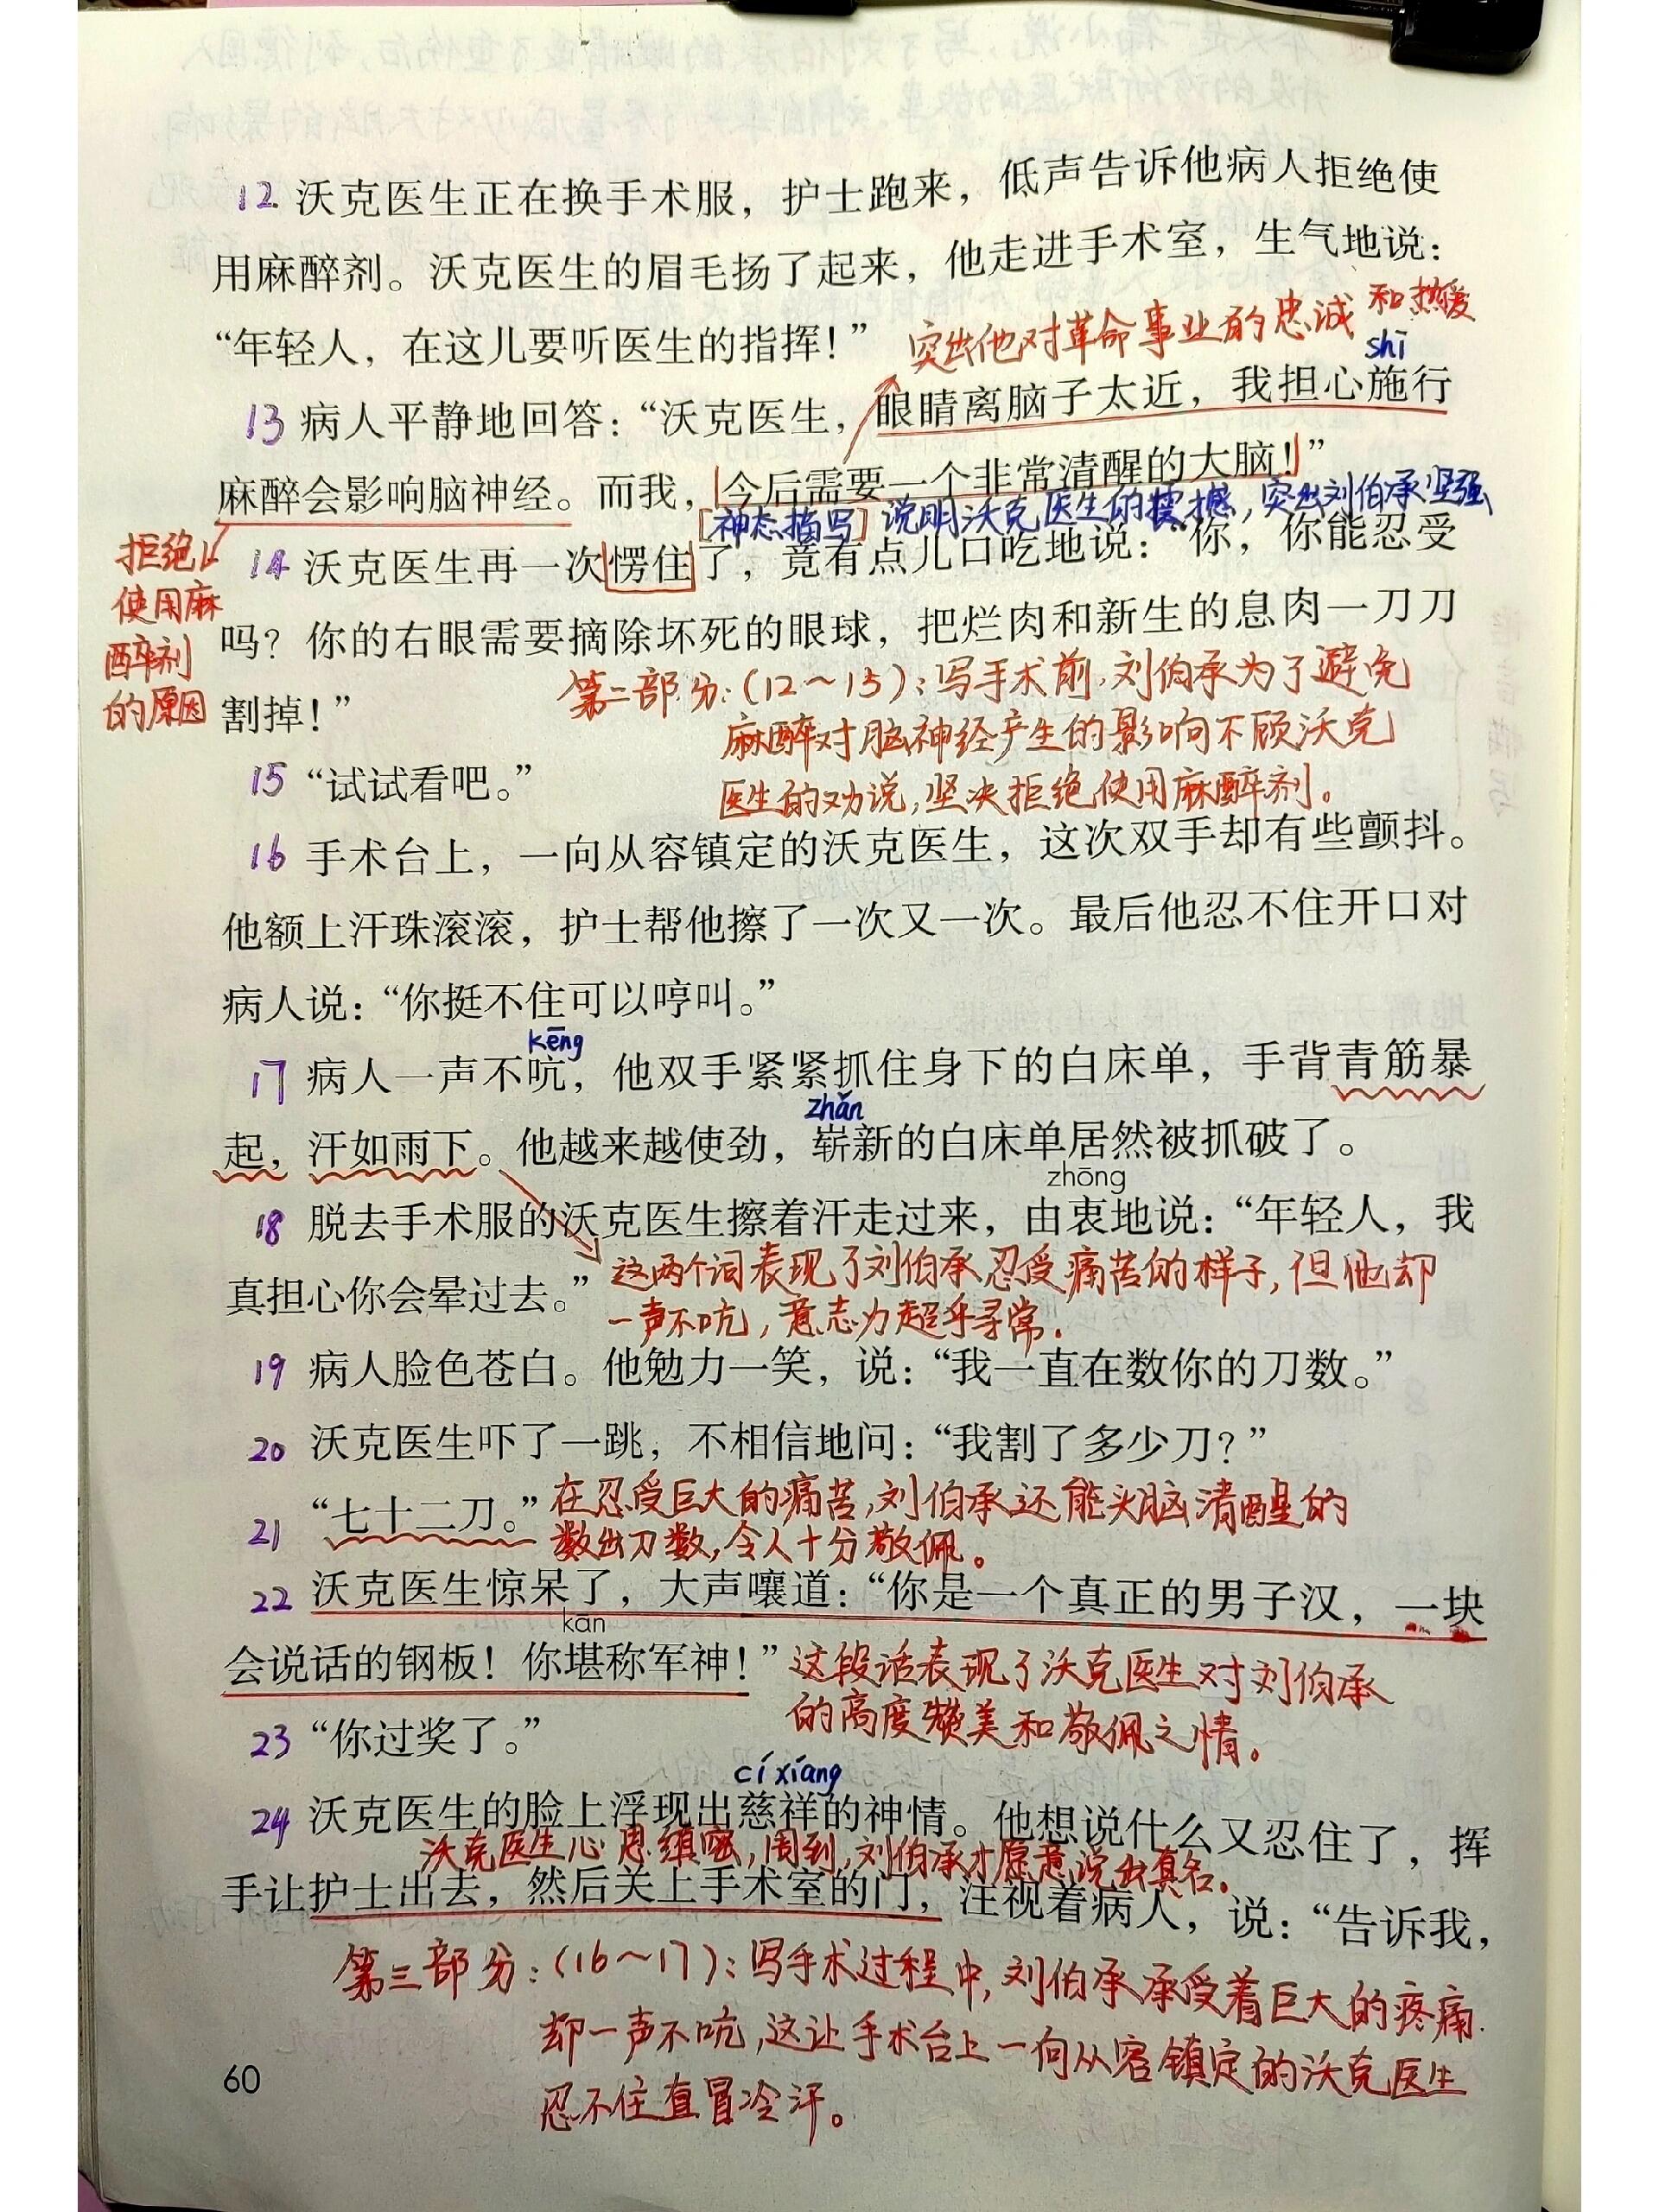 12 沃克医生正在换手术服，护士跑来，低声告诉他病人拒绝使
用麻醉剂。沃克医生的眉毛扬了起来，他走进手术室，生气地说：
“年轻人，在这儿要听医生的指挥！”
突出他对革命事业的忠诚和热爱
shī
13 病人平静地回答：“沃克医生，眼睛离脑子太近，我担心施行
麻醉会影响脑神经。而我，今后需要一个非常清醒的大脑！”
[神态描写] 说明沃克医生的震撼，突出刘伯承坚强
拒绝
使用麻
醉剂
的原因
14 沃克医生再一次愣住了，竟有点儿口吃地说：“你，你能忍受
吗？你的右眼需要摘除坏死的眼球，把烂肉和新生的息肉一刀刀
割掉！”
第二部分：(12～15)：写手术前，刘伯承为了避免
麻醉对脑神经产生的影响不顾沃克
医生的劝说，坚决拒绝使用麻醉剂。
15 “试试看吧。”
16 手术台上，一向从容镇定的沃克医生，这次双手却有些颤抖。
他额上汗珠滚滚，护士帮他擦了一次又一次。最后他忍不住开口对
病人说：“你挺不住可以哼叫。”
kēng
17 病人一声不吭，他双手紧紧抓住身下的白床单，手背青筋暴
zhǎn
起，汗如雨下。他越来越使劲，崭新的白床单居然被抓破了。
zhōng
18 脱去手术服的沃克医生擦着汗走过来，由衷地说：“年轻人，我
真担心你会晕过去。”
这两个词表现了刘伯承忍受痛苦的样子，但他却
一声不吭，意志力超乎寻常.
19 病人脸色苍白。他勉力一笑，说：“我一直在数你的刀数。”
20 沃克医生吓了一跳，不相信地问：“我割了多少刀？”
21 “七十二刀。”
在忍受巨大的痛苦，刘伯承还能头脑清醒的
数出刀数，令人十分敬佩。
22 沃克医生惊呆了，大声嚷道：“你是一个真正的男子汉，一块
kān
会说话的钢板！你堪称军神！”
这段话表现了沃克医生对刘伯承
的高度赞美和敬佩之情。
23 “你过奖了。”
cí xiáng
24 沃克医生的脸上浮现出慈祥的神情。他想说什么又忍住了，挥
沃克医生心思缜密，周到，刘伯承才愿意说出真名。
手让护士出去，然后关上手术室的门，注视着病人，说：“告诉我，
第三部分：(16～17)：写手术过程中，刘伯承承受着巨大的疼痛.
却一声不吭，这让手术台上一向从容镇定的沃克医生
忍不住直冒冷汗。
60